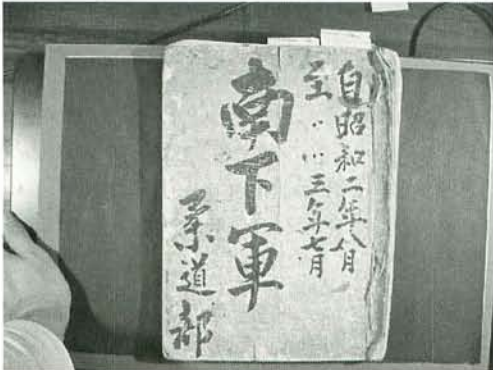 自昭和二年八月
至〃〃三年七月
南下軍
柔道部